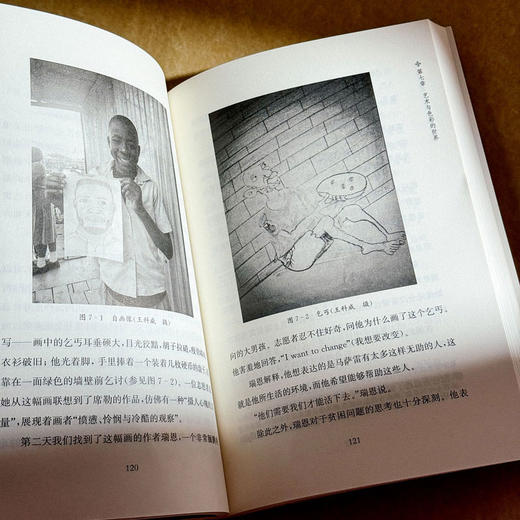 图 7-1 自画像(王科威 摄)
写——画中的乞丐耳垂硕大,目光狡黠,胡子拉碴,
衣衫破旧;他光着脚,手里捧着一个装着几枚硬币的
靠在一面绿色的墙壁前乞讨(参见图 7-2)。一位志愿
她从这幅画联想到了席勒的作品,仿佛有一种“摄人心魄
量”,展现着画者“愤懑、怜悯与冷酷的观察”。
第二天我们找到了这幅画的作者瑞恩,一个非常腼腆
120
第七章 艺术与色彩的世界
图 7-2 乞丐(王科威 摄)
问的大男孩。志愿者忍不住好奇,问他为什么画了这个乞丐。
他害羞地回答,“I want to change”(我想要改变)。
瑞恩解释,他想表达的是马萨雷有太多这样无助的人,这
就是他所生活的环境,而他希望能够帮助这些人。
“他们需要我们才能活下去。”瑞恩说。
除此之外,瑞恩对于贫困问题的思考也十分深刻。他表
121